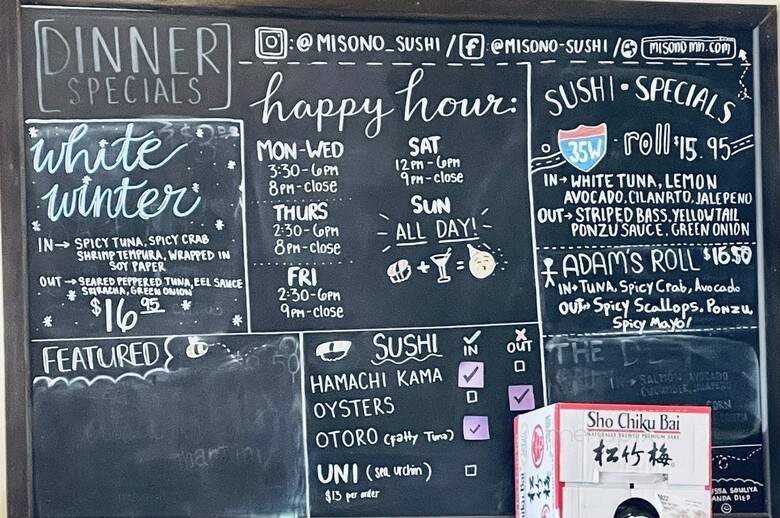 DINNER
SPECIALS
: @MISONO_SUSHI / f @MISONO-SUSHI / misonomn.com
white
winter
IN → SPICY TUNA, SPICY CRAB
SHRIMP TEMPURA, WRAPPED IN
SOY PAPER
OUT → SEARED PEPPERED TUNA, EEL SAUCE
SRIRACHA, GREEN ONION
$16 95
happy hour:
MON-WED
3:30-6pm
8pm-close
THURS
2:30-6pm
8pm-close
FRI
2:30-6pm
9pm-close
SAT
12pm-6pm
9pm-close
SUN
ALL DAY!
+ =
SUSHI • SPECIALS
35W roll $15.95
IN → WHITE TUNA, LEMON
AVOCADO, CILANRTO, JALEPENO
OUT → STRIPED BASS, YELLOWTAIL
PONZU SAUCE, GREEN ONION
ADAM'S ROLL $16.50
IN → TUNA, Spicy Crab, Avocado
OUT → Spicy Scallops, Ponzu,
Spicy Mayo!
FEATURED
SUSHI IN OUT
HAMACHI KAMA
OYSTERS
OTORO (fatty Tuna)
UNI (sea urchin)
$13 per order
THE
IN → SALMON, AVOCADO
CUCUMBER, JALAPENO
CORN
Sho Chiku Bai
NATURALLY BREWED PREMIUM SAKE
松竹梅
Chiku Bai